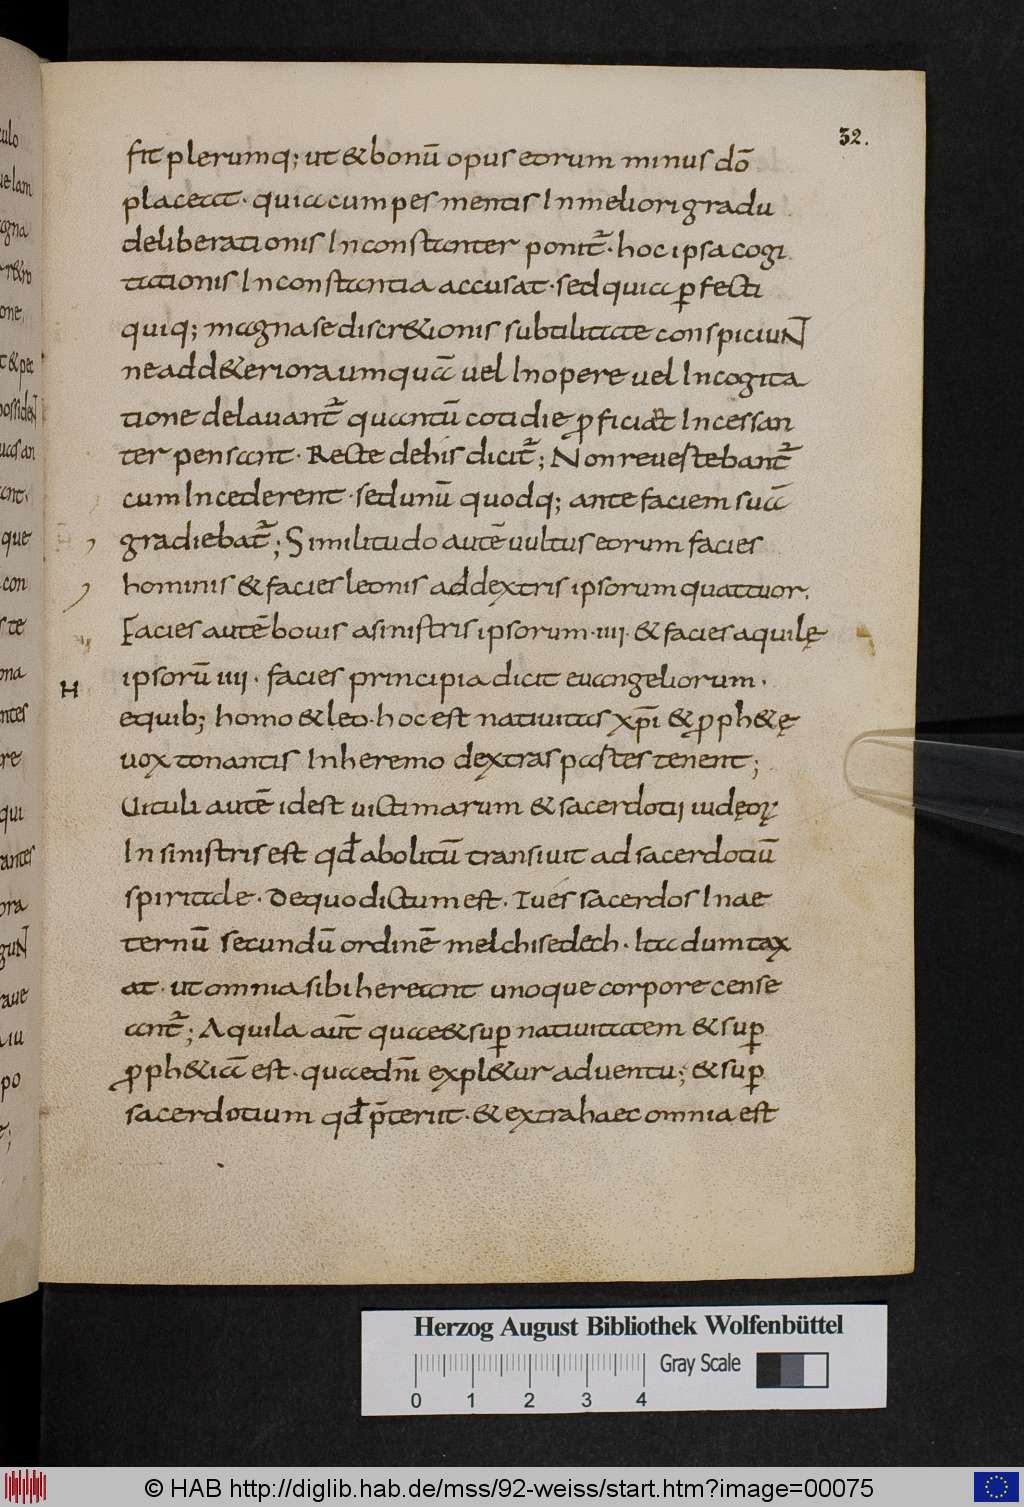 32.
fit plerumq; ut & bonū opus eorum minus dō
placeat · quia cum pes mentis In meliori gradu
deliberationis Inconstanter ponit᷑ · hoc ipsa cogi
tationis Inconstantia accusat · sed quia ꝑfecti
quiq; magna se discr&ionis subtilitate conspiciuɴt
ne ad d&eriora umquā vel In opere vel In cogita
tione delavant᷑ quantū cotidie ꝓficiat Incessan
ter pensant · Recte de his dicit᷑; Non revestebant᷑
cum Incederent · sed unū quodq; ante faciem suā
gradiebat᷑; Similitudo autē vultus eorum facies
hominis & facies leonis ad dextris ipsorum quattuor.
Facies autē bovis a sinistris ipsorum · iiii · & facies aquilę
ipsorū iiii · facies principia dicit euangeliorum ·
H
equib; homo & leo · hoc est nativitas xp̄i & ꝓph&ę
vox tonantis In heremo dextras partes tenent;
Vituli autē id est victimarum & sacerdotii iudęoꝝ
In sinistris est qđ abolitū transivit ad sacerdotiū
spiritale · De quo dictum est · Tu es sacerdos In ae
ternū secundū ordinē melchisedech · Ita dumtax
at · ut omnia sibi hereant uno que corpore cense
ant᷑; Aquila aut̄ quae & suꝑ nativitatem & suꝑ
ꝓph&iā est · quaed n̄i expl&ur adventu; & suꝑ
sacerdotium qđ p̄teriit · & extra haec omnia est
culo
que
con
po
Herzog August Bibliothek Wolfenbüttel
Gray Scale
0 1 2 3 4
© HAB http://diglib.hab.de/mss/92-weiss/start.htm?image=00075